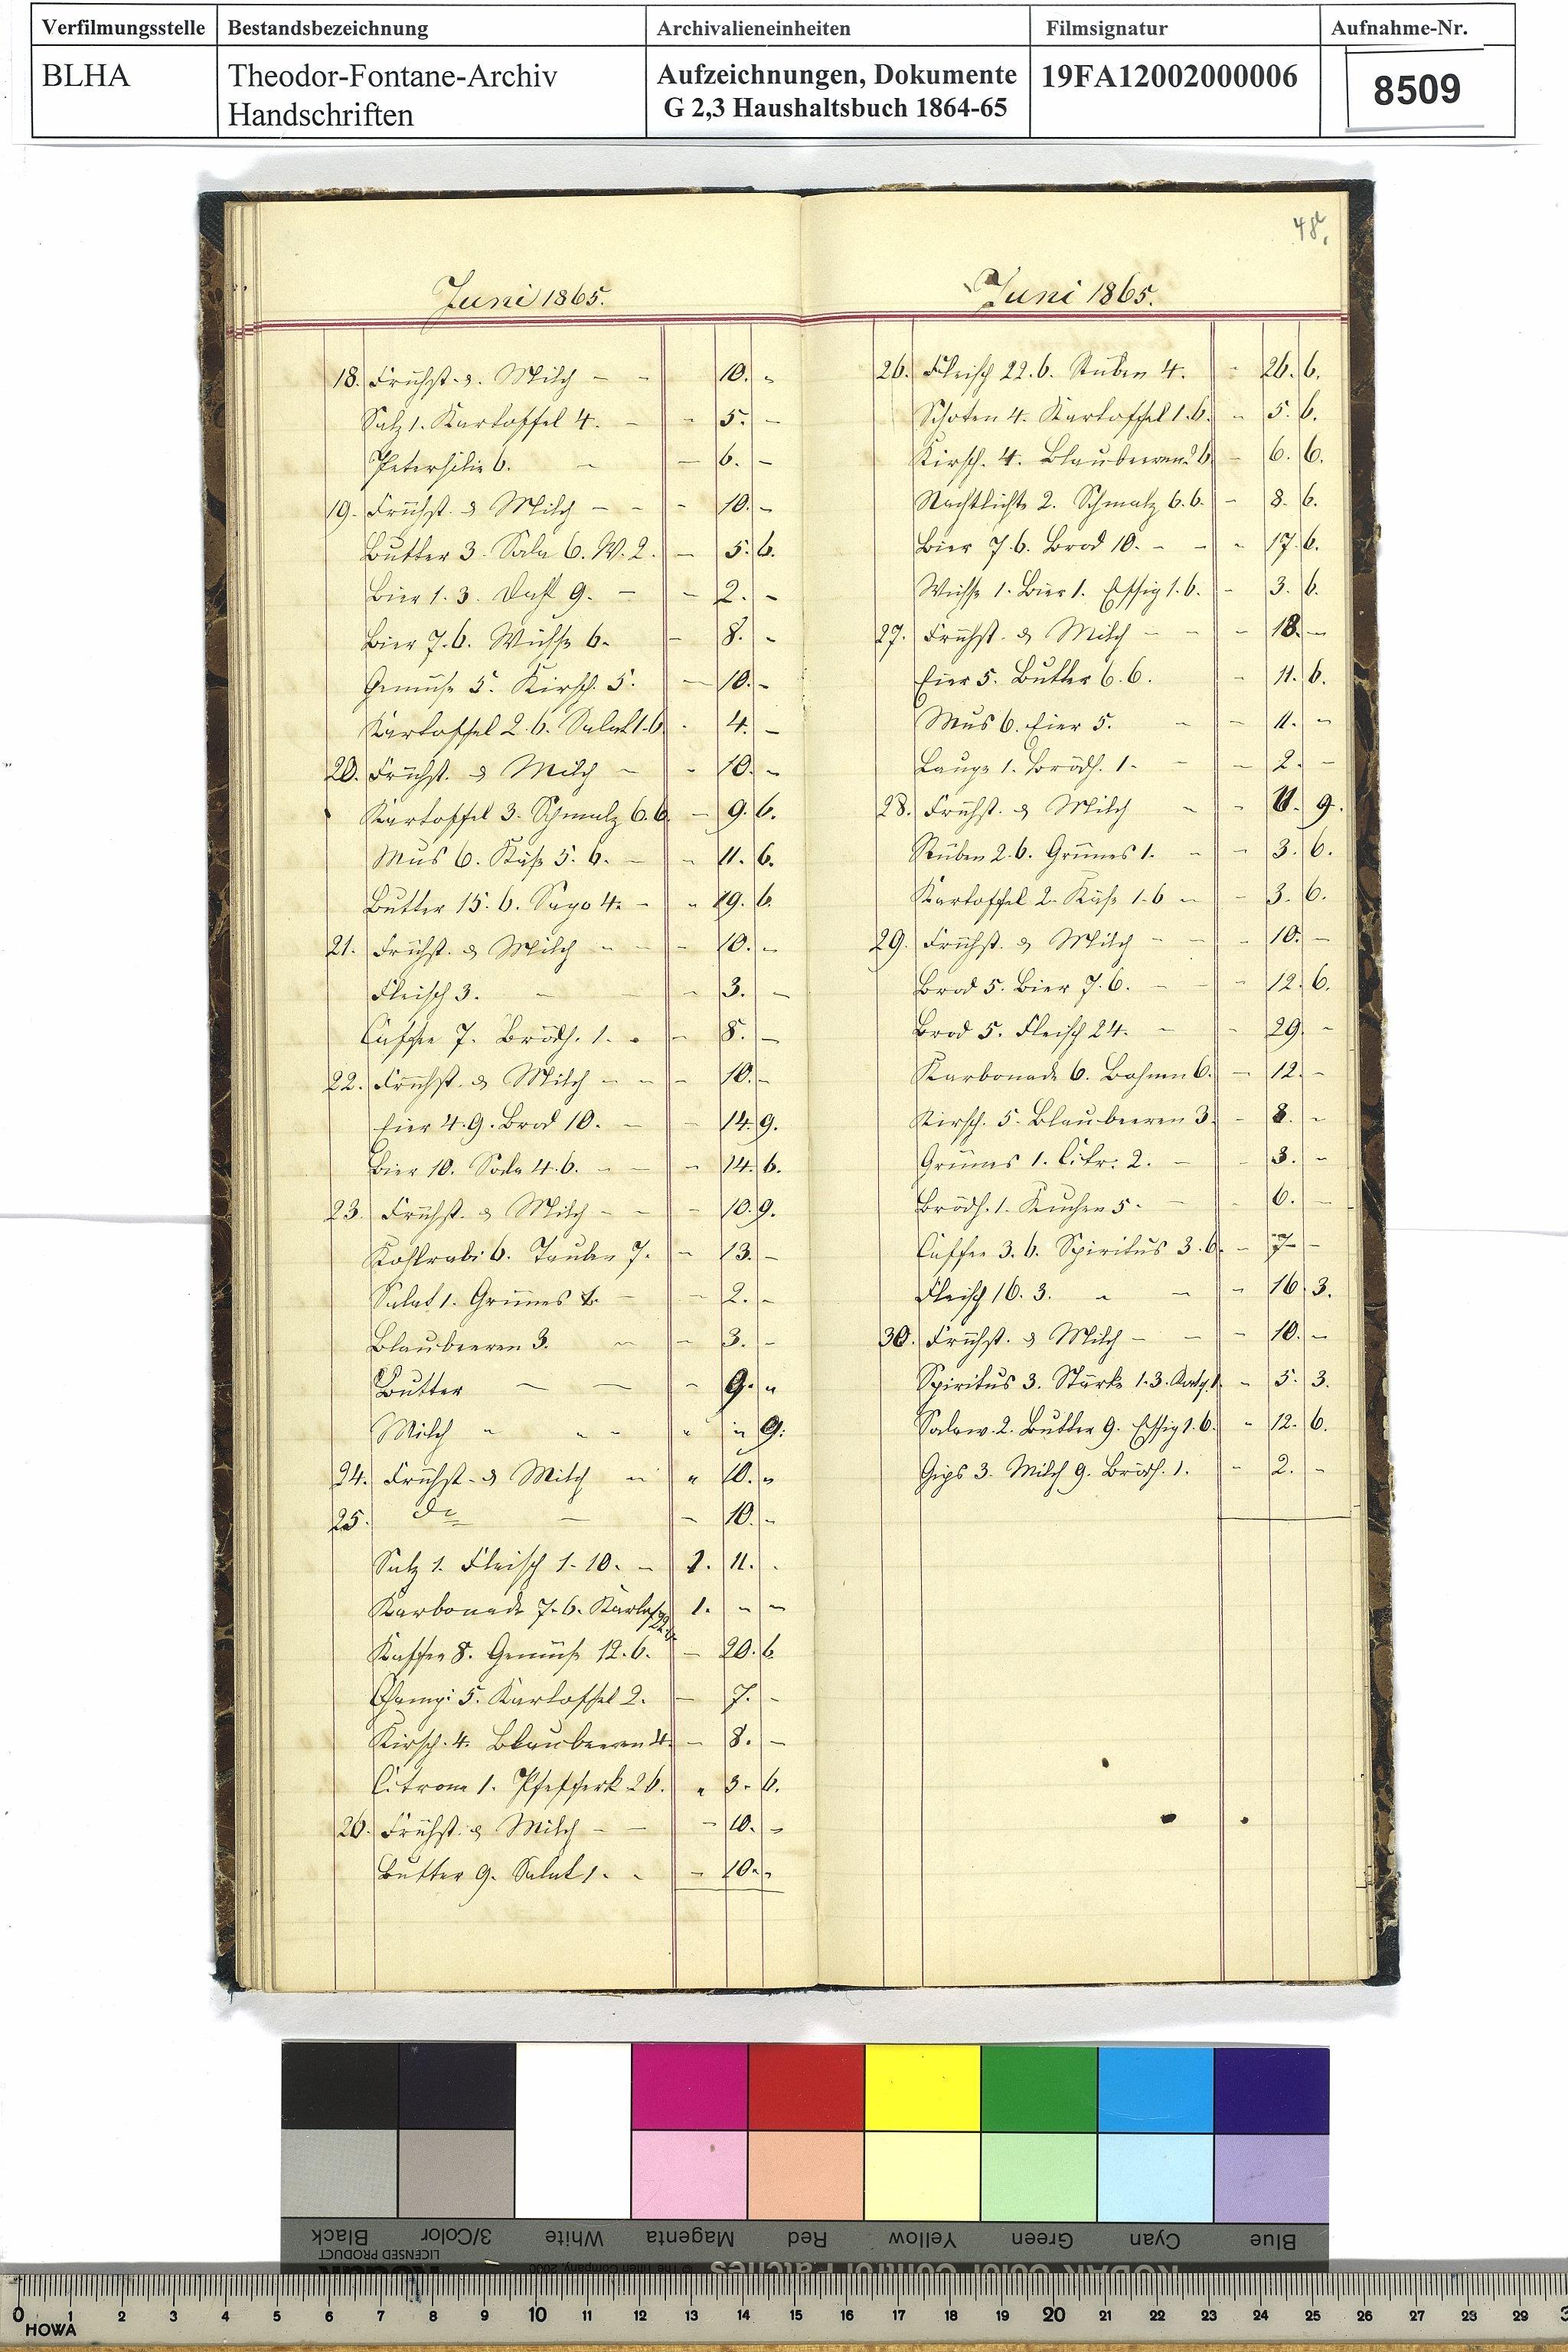 Verfilmungsstelle Bestandsbezeichnung Archivalieneinheiten Filmsignatur Aufnahme-Nr.
BLHA Theodor-Fontane-Archiv Handschriften Aufzeichnungen, Dokumente G 2,3 Haushaltsbuch 1864-65 19FA12002000006 8509
Juni 1865.
18. Frühst. & Milch - - 10. -
Salz 1. Kartoffel 4. - - 5. -
Petersilie 6. - - 6. -
19. Frühst. & Milch - - - 10. -
Butter 3. Soda 6. W. 2. - 5. 6.
Bier 1. 3. 9. - - 2. -
Bier 7. 6. Wichse 6. - 8. -
Gemüse 5. Kirsch. 5. - 10. -
Kartoffel 2. 6. Salat 1. 6. - 4. -
20. Frühst. & Milch - - 10. -
Kartoffel 3. Schmalz 6. 6. - 9. 6.
Mus 6. Käse 5. 6. - - 11. 6.
Butter 15. 6. Sago 4. - - 19. 6.
21. Frühst. & Milch - - - 10. -
Fleisch 3. - - 3. -
Caffee 7. Brödch. 1. - - 8. -
22. Frühst. & Milch - - - 10. -
Eier 4. 9. Brod 10. - - 14. 9.
Bier 10. Soda 4. 6. - - - 14. 6.
23. Frühst. & Milch - - - 10. 9.
Kohlrabi 6. Tauben 7. - 13. -
Salat 1. Grünes 1. - - 2. -
Blaubeeren 3. - - 3. -
Butter - - - 9. "
Milch " " - " " 9.
24. Frühst. & Milch " " 10. "
25. do - - 10. -
Salz 1. Fleisch 1. 10. - 1. 11. -
Karbonade 7. 6. 22. 6. 1. - -
Kaffee 8. Gemüse 12. 6. - 20. 6.
Champi 5. Kartoffel 2. - 7. -
Kirsch. 4. Blaubeeren 4. - 8. -
Citrone 1. Pfefferk. 2 6. " 3. 6.
26. Frühst. & Milch - - - 10. -
Butter 9. Salat 1. - - 10. -
48
Juni 1865.
26. Fleisch 22. 6. Rüben 4. - 26. 6.
Schoten 4. Kartoffel 1. 6. - 5. 6.
Kirsch. 4. Blaubeeren 2 6. - 6. 6.
Nachtlichte 2. Schmalz 6. 6. - 8. 6.
Bier 7. 6. Brod 10. - - - 17. 6.
Wichse 1. Bier 1. Essig 1. 6. - 3. 6.
27. Frühst. & Milch - - - 18. -
Eier 5. Butter 6. 6. - 11. 6.
Mus 6. Eier 5. - - 11. -
Lauge 1. Brödch. 1. - - 2. -
28. Frühst. & Milch - - 11. 9.
Rüben 2. 6. Grünes 1. - - 3. 6.
Kartoffel 2. Käse 1. 6 - - 3. 6.
29. Frühst. & Milch - - - 10. -
Brod 5. Bier 7. 6. - - - 12. 6.
Brod 5. Fleisch 24. - - 29. -
Karbonade 6. Bohnen 6. - 12. -
Kirsch. 5. Blaubeeren 3. - 8. -
Grünes 1. Citr: 2. - - 3. -
Brödch. 1. Kuchen 5. - - 6. -
Caffee 3. 6. Spiritus 3. 6. - 7 - -
Fleisch 16. 3. - - - 16. 3.
30. Frühst. & Milch - - - 10. -
Spiritus 3. Stärke 1. 3. 1. - 5. 3.
2. Butter 9. Essig 1. 6. - 12. 6.
Gips 3. Milch 9. Brödch. 1. - 2. -
Black 3/Color White Magenta Red Yellow Green Cyan Blue
Kodak LICENSED PRODUCT © The Tiffen Company, 2000 KODAK Color Control Patches
0 1 2 3 4 5 6 7 8 9 10 11 12 13 14 15 16 17 18 19 20 21 22 23 24 25 26 27 28 29
HOWA